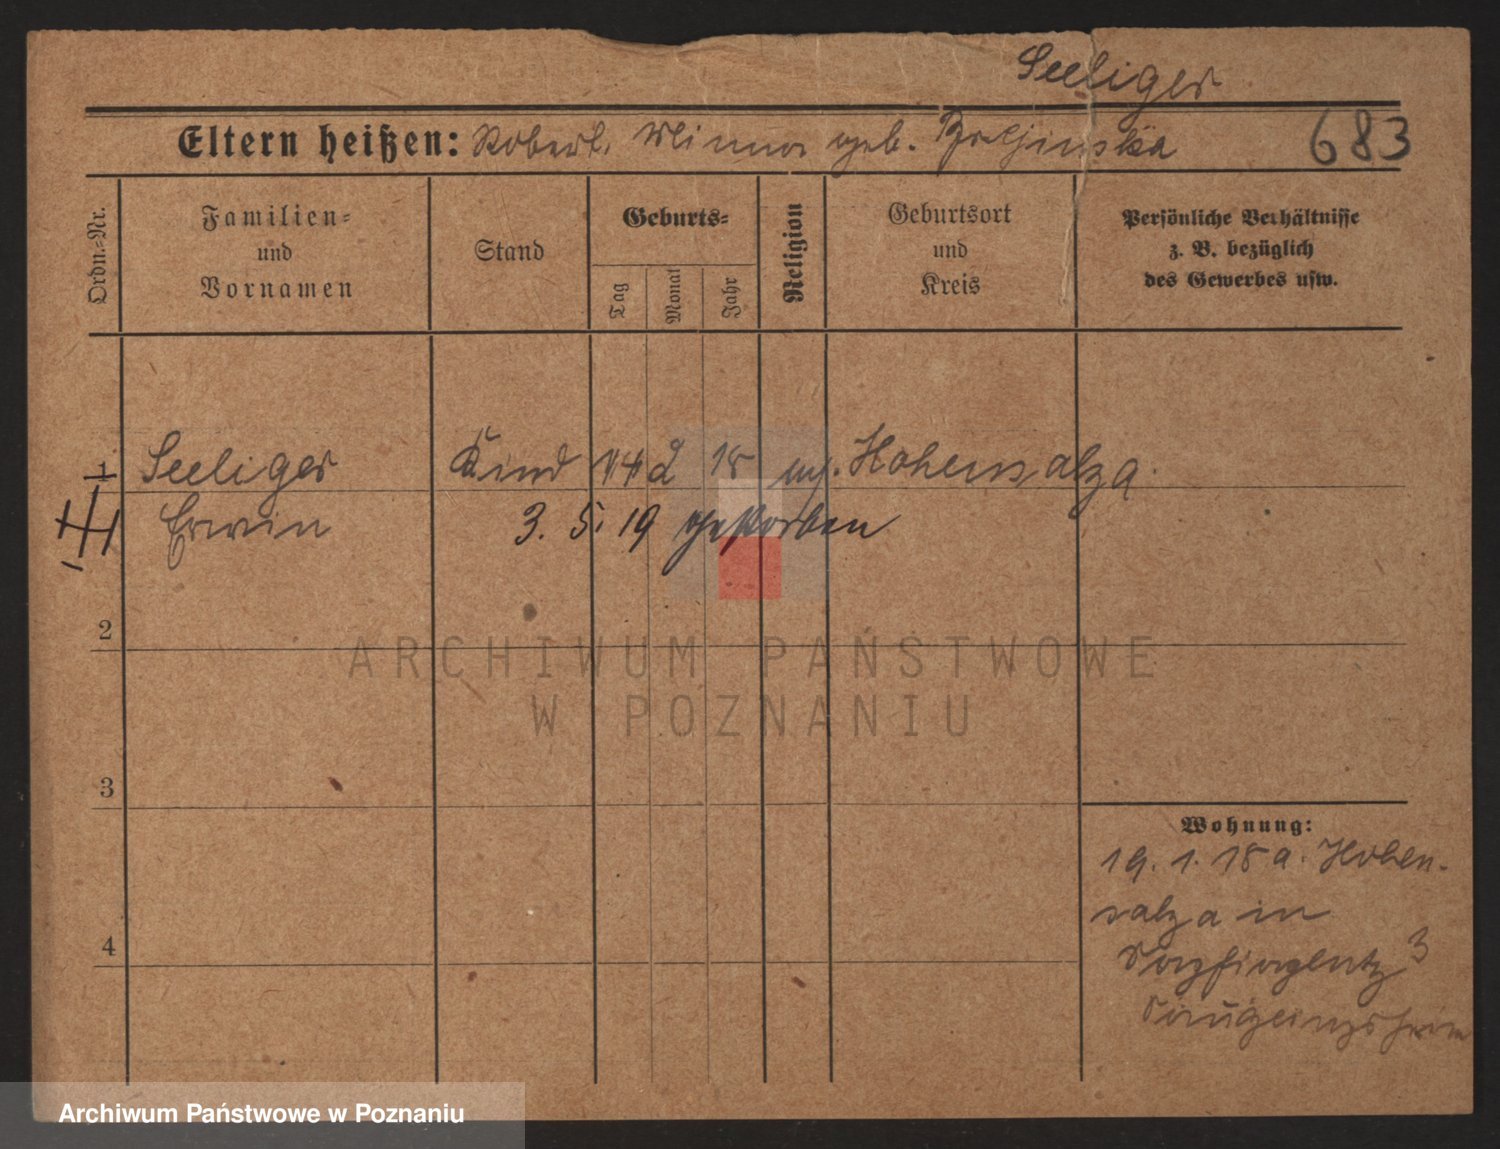 Seeliger
Eltern heißen: Robert. Minna geb.
683
Ordn.-Nr.
Familien-
und
Vornamen
Stand
Geburts-
Tag
Monat
Jahr
Religion
Geburtsort
und
Kreis
Persönliche Verhältnisse
z. B. bezüglich
des Gewerbes usw.
1 Seeliger Kind 2 18 Hohensalza.
Erwin 3. 5. 19 gestorben
2
ARCHIWUM PAŃSTWOWE
W POZNANIU
3
Wohnung:
19. 1. 18 a. Hohen-
salza in
3
4
Archiwum Państwowe w Poznaniu